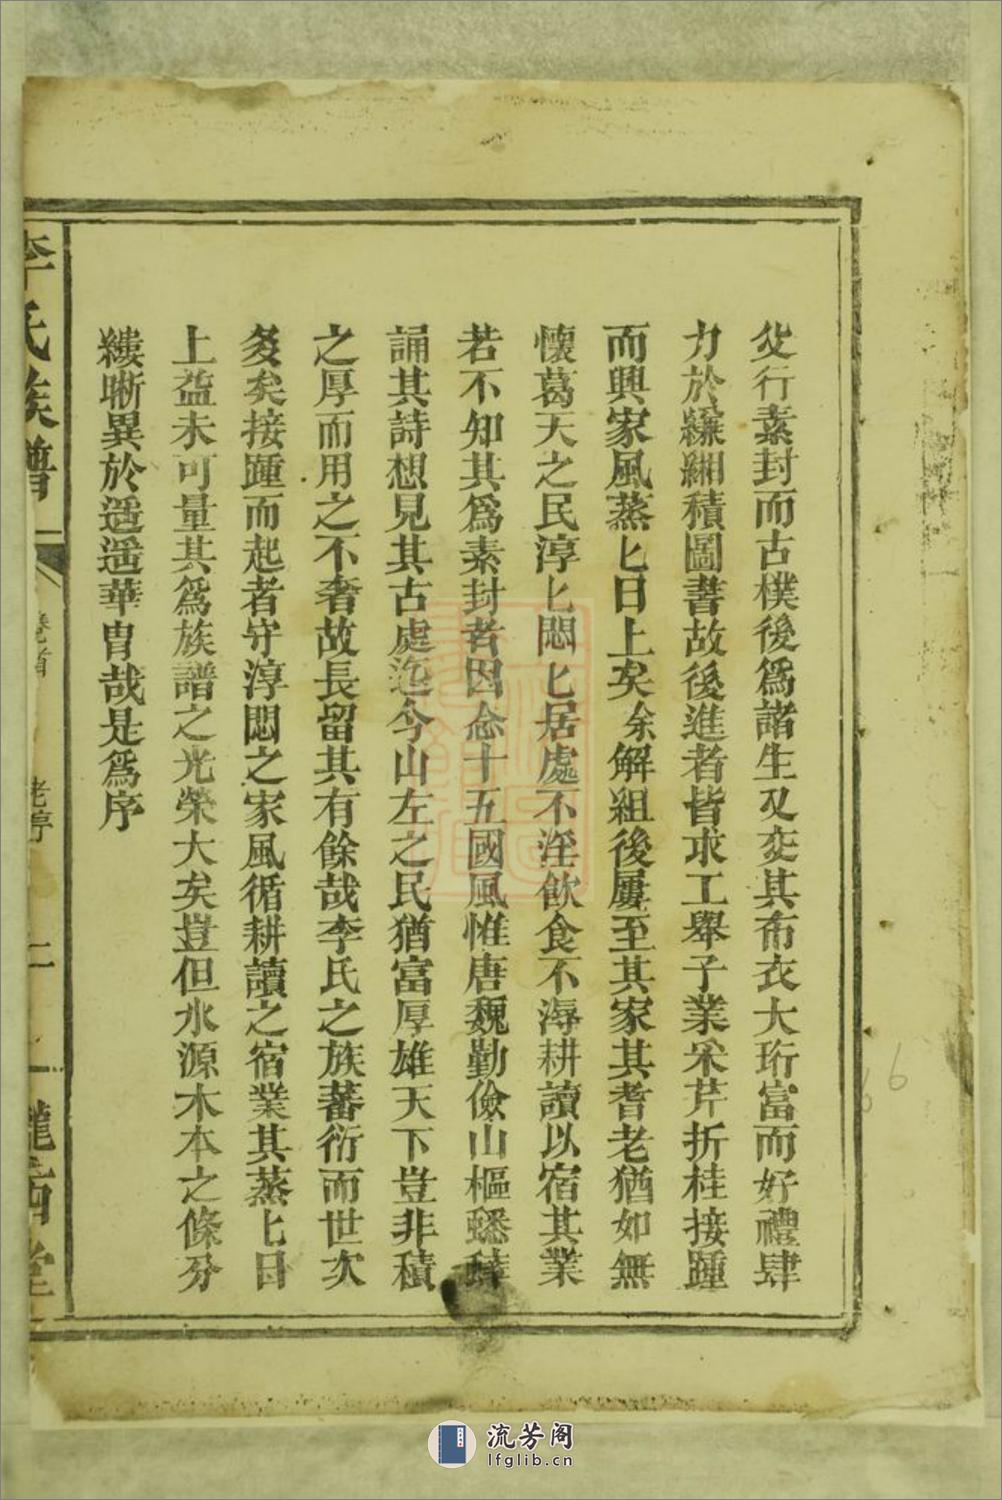 父行素封而古樸後爲諸生又交其布衣大珩富而好禮肆
力於縹緗積圖書故後進者皆求工舉子業采芹折桂接踵
而興家風蒸匕日上矣余解組後屢至其家其耆老猶如無
懷葛天之民淳匕悶匕居處不淫飲食不溽耕讀以宿其業
若不知其爲素封者因念十五國風惟唐魏勤儉山樞蟋蟀
誦其詩想見其古處迄今山左之民猶富厚雄天下豈非積
之厚而用之不奢故長留其有餘哉李氏之族蕃衍而世次
矣接踵而起者守淳悶之家風循耕讀之宿業其蒸匕日
上益未可量其爲族譜之光榮大矣豈但水源木本之條分
縷晰異於遥遥華胄哉是爲序
李氏族譜
卷首
老序
二
隴西堂
流芳阁
lfglib.cn